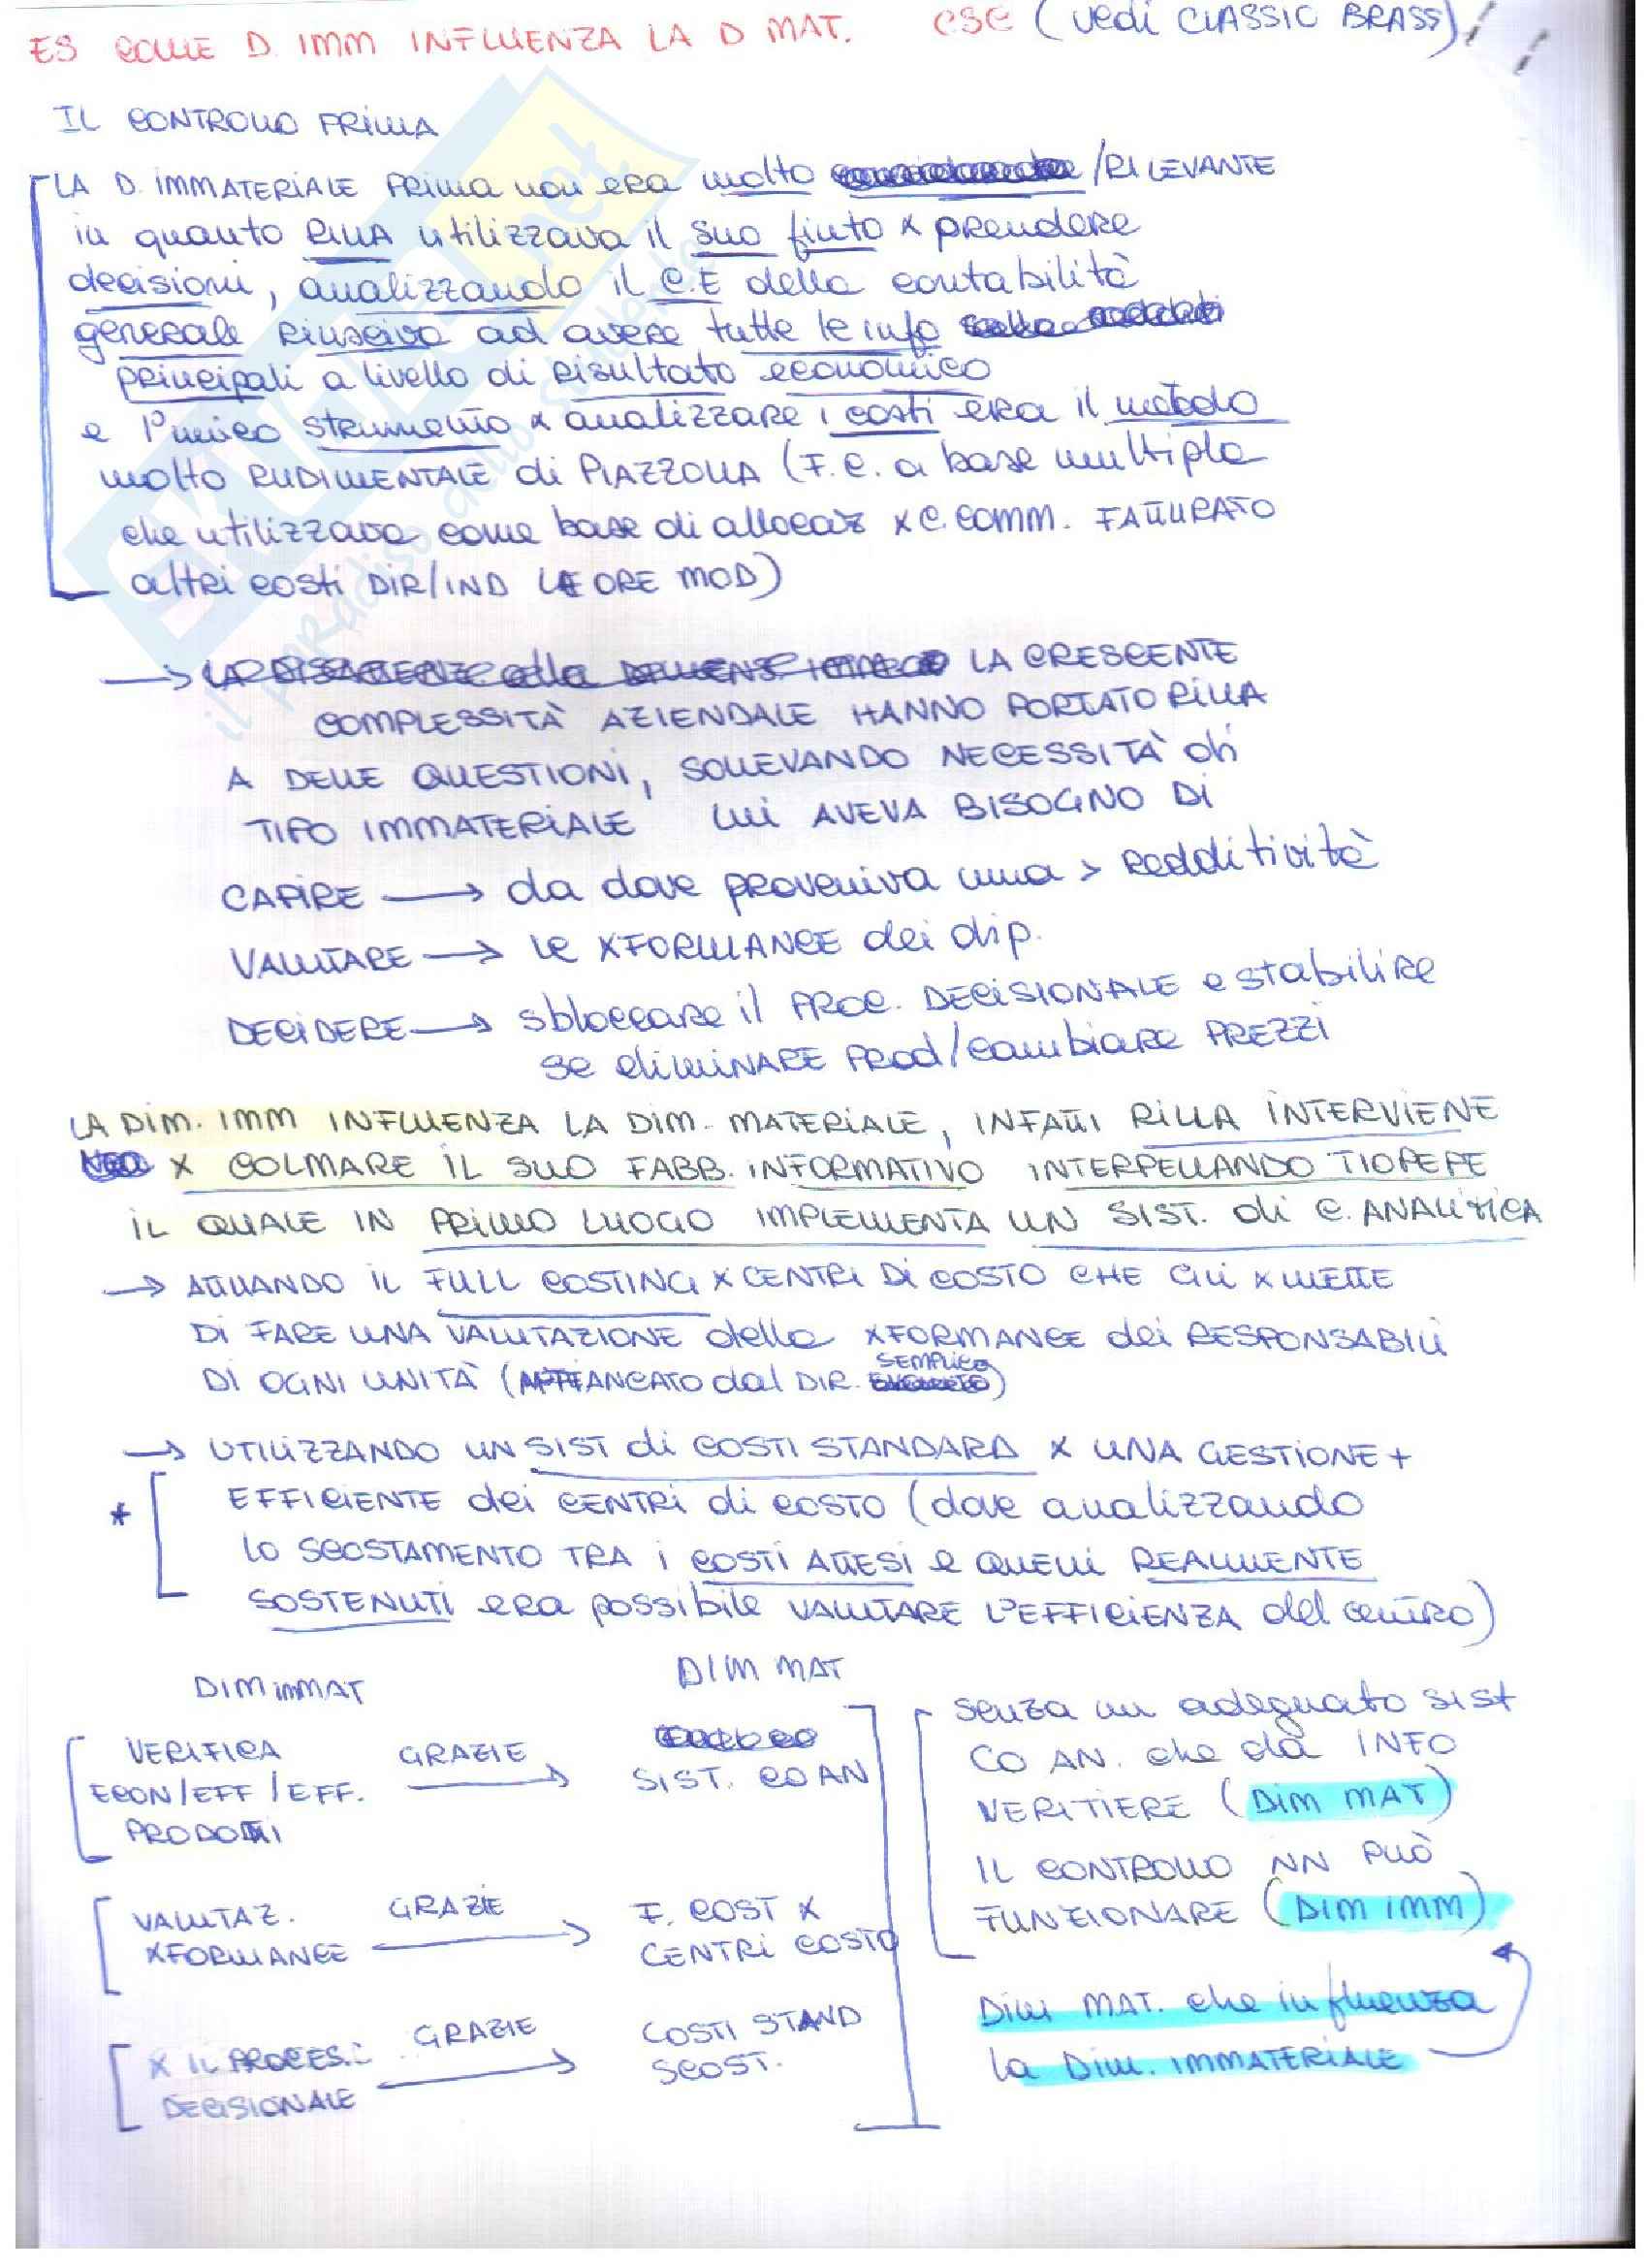 ES COME D. IMM INFLUENZA LA D MAT. CSC (vedi CLASSIC BRASS)
IL CONTROLLO PRIMA
LA D. IMMATERIALE PRIMA non era molto /RILEVANTE
in quanto RILLA utilizzava il suo fiuto x prendere
decisioni, analizzando il C.E della contabilità
generale riusciva ad avere tutte le info
principali a livello di risultato economico
e l'unico strumento x analizzare i costi era il metodo
molto RUDIMENTALE di PIAZZOLLA (F.C. a base multipla
che utilizzava come base di allocaz x C. COMM. FATTURATO
altri costi DIR/IND LE ORE MOD)
→ LA CRESCENTE
COMPLESSITÀ AZIENDALE HANNO PORTATO RILLA
A DELLE QUESTIONI, SOLLEVANDO NECESSITÀ di
TIPO IMMATERIALE LUI AVEVA BISOGNO DI
CAPIRE → da dove proveniva una > redditività
VALUTARE → le XFORMANCE dei dip.
DECIDERE → sbloccare il PROC. DECISIONALE e stabilire
se eliminare PROD/cambiare PREZZI
LA DIM. IMM INFLUENZA LA DIM. MATERIALE, INFATTI RILLA INTERVIENE
X COLMARE IL SUO FABB. INFORMATIVO INTERPELLANDO TIOPEPE
IL QUALE IN PRIMO LUOGO IMPLEMENTA UN SIST. di C. ANALITICA
→ ATTUANDO IL FULL COSTING X CENTRI DI COSTO CHE GLI XMETTE
DI FARE UNA VALUTAZIONE della XFORMANCE dei RESPONSABILI
DI OGNI UNITÀ (AFFIANCATO dal DIR. SEMPLICE)
→ UTILIZZANDO UN SIST di COSTI STANDARD X UNA GESTIONE +
* EFFICIENTE dei CENTRI di COSTO (dove analizzando
lo SCOSTAMENTO TRA i COSTI ATTESI e QUELLI REALMENTE
SOSTENUTI era possibile VALUTARE L'EFFICIENZA del centro)
DIM imMAT DIM MAT
VERIFICA ECON/EFF/EFF. PRODOTTI GRAZIE → SIST. COAN
VALUTAZ. XFORMANCE GRAZIE → F. COST X CENTRI COSTO
X IL PROCES. DECISIONALE GRAZIE → COSTI STAND SCOST.
senza un adeguato sist
CO AN. che dà INFO
VERITIERE (DIM MAT)
IL CONTROLLO NN PUÒ
FUNZIONARE (DIM IMM)
Dim MAT. che influenza
la Dim. IMMATERIALE